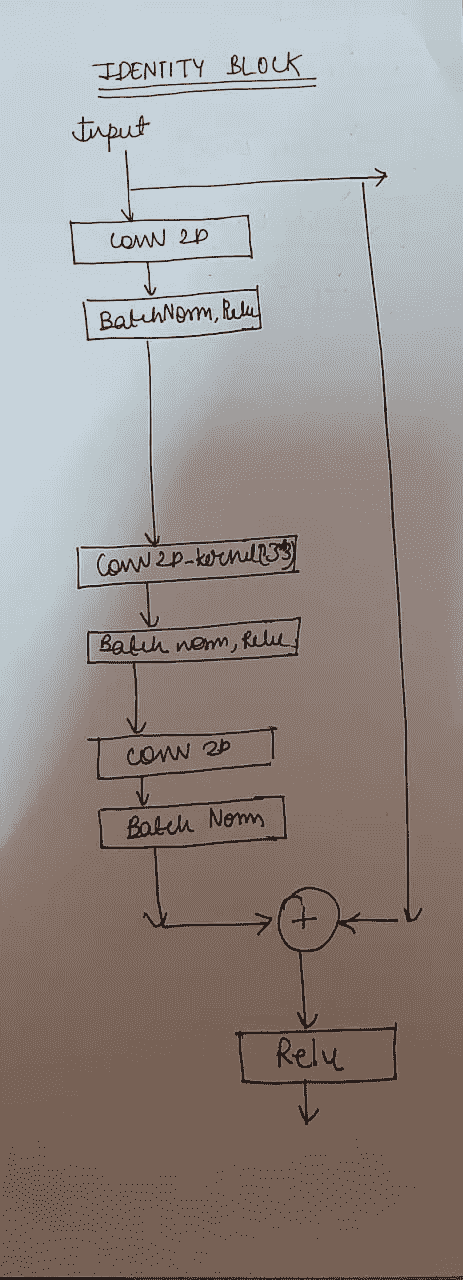 IDENTITY BLOCK
Input
Conv 2D
BatchNorm, Relu
Conv 2D-kernel(3*3)
Batch norm, Relu
Conv 2D
Batch Norm
+
Relu